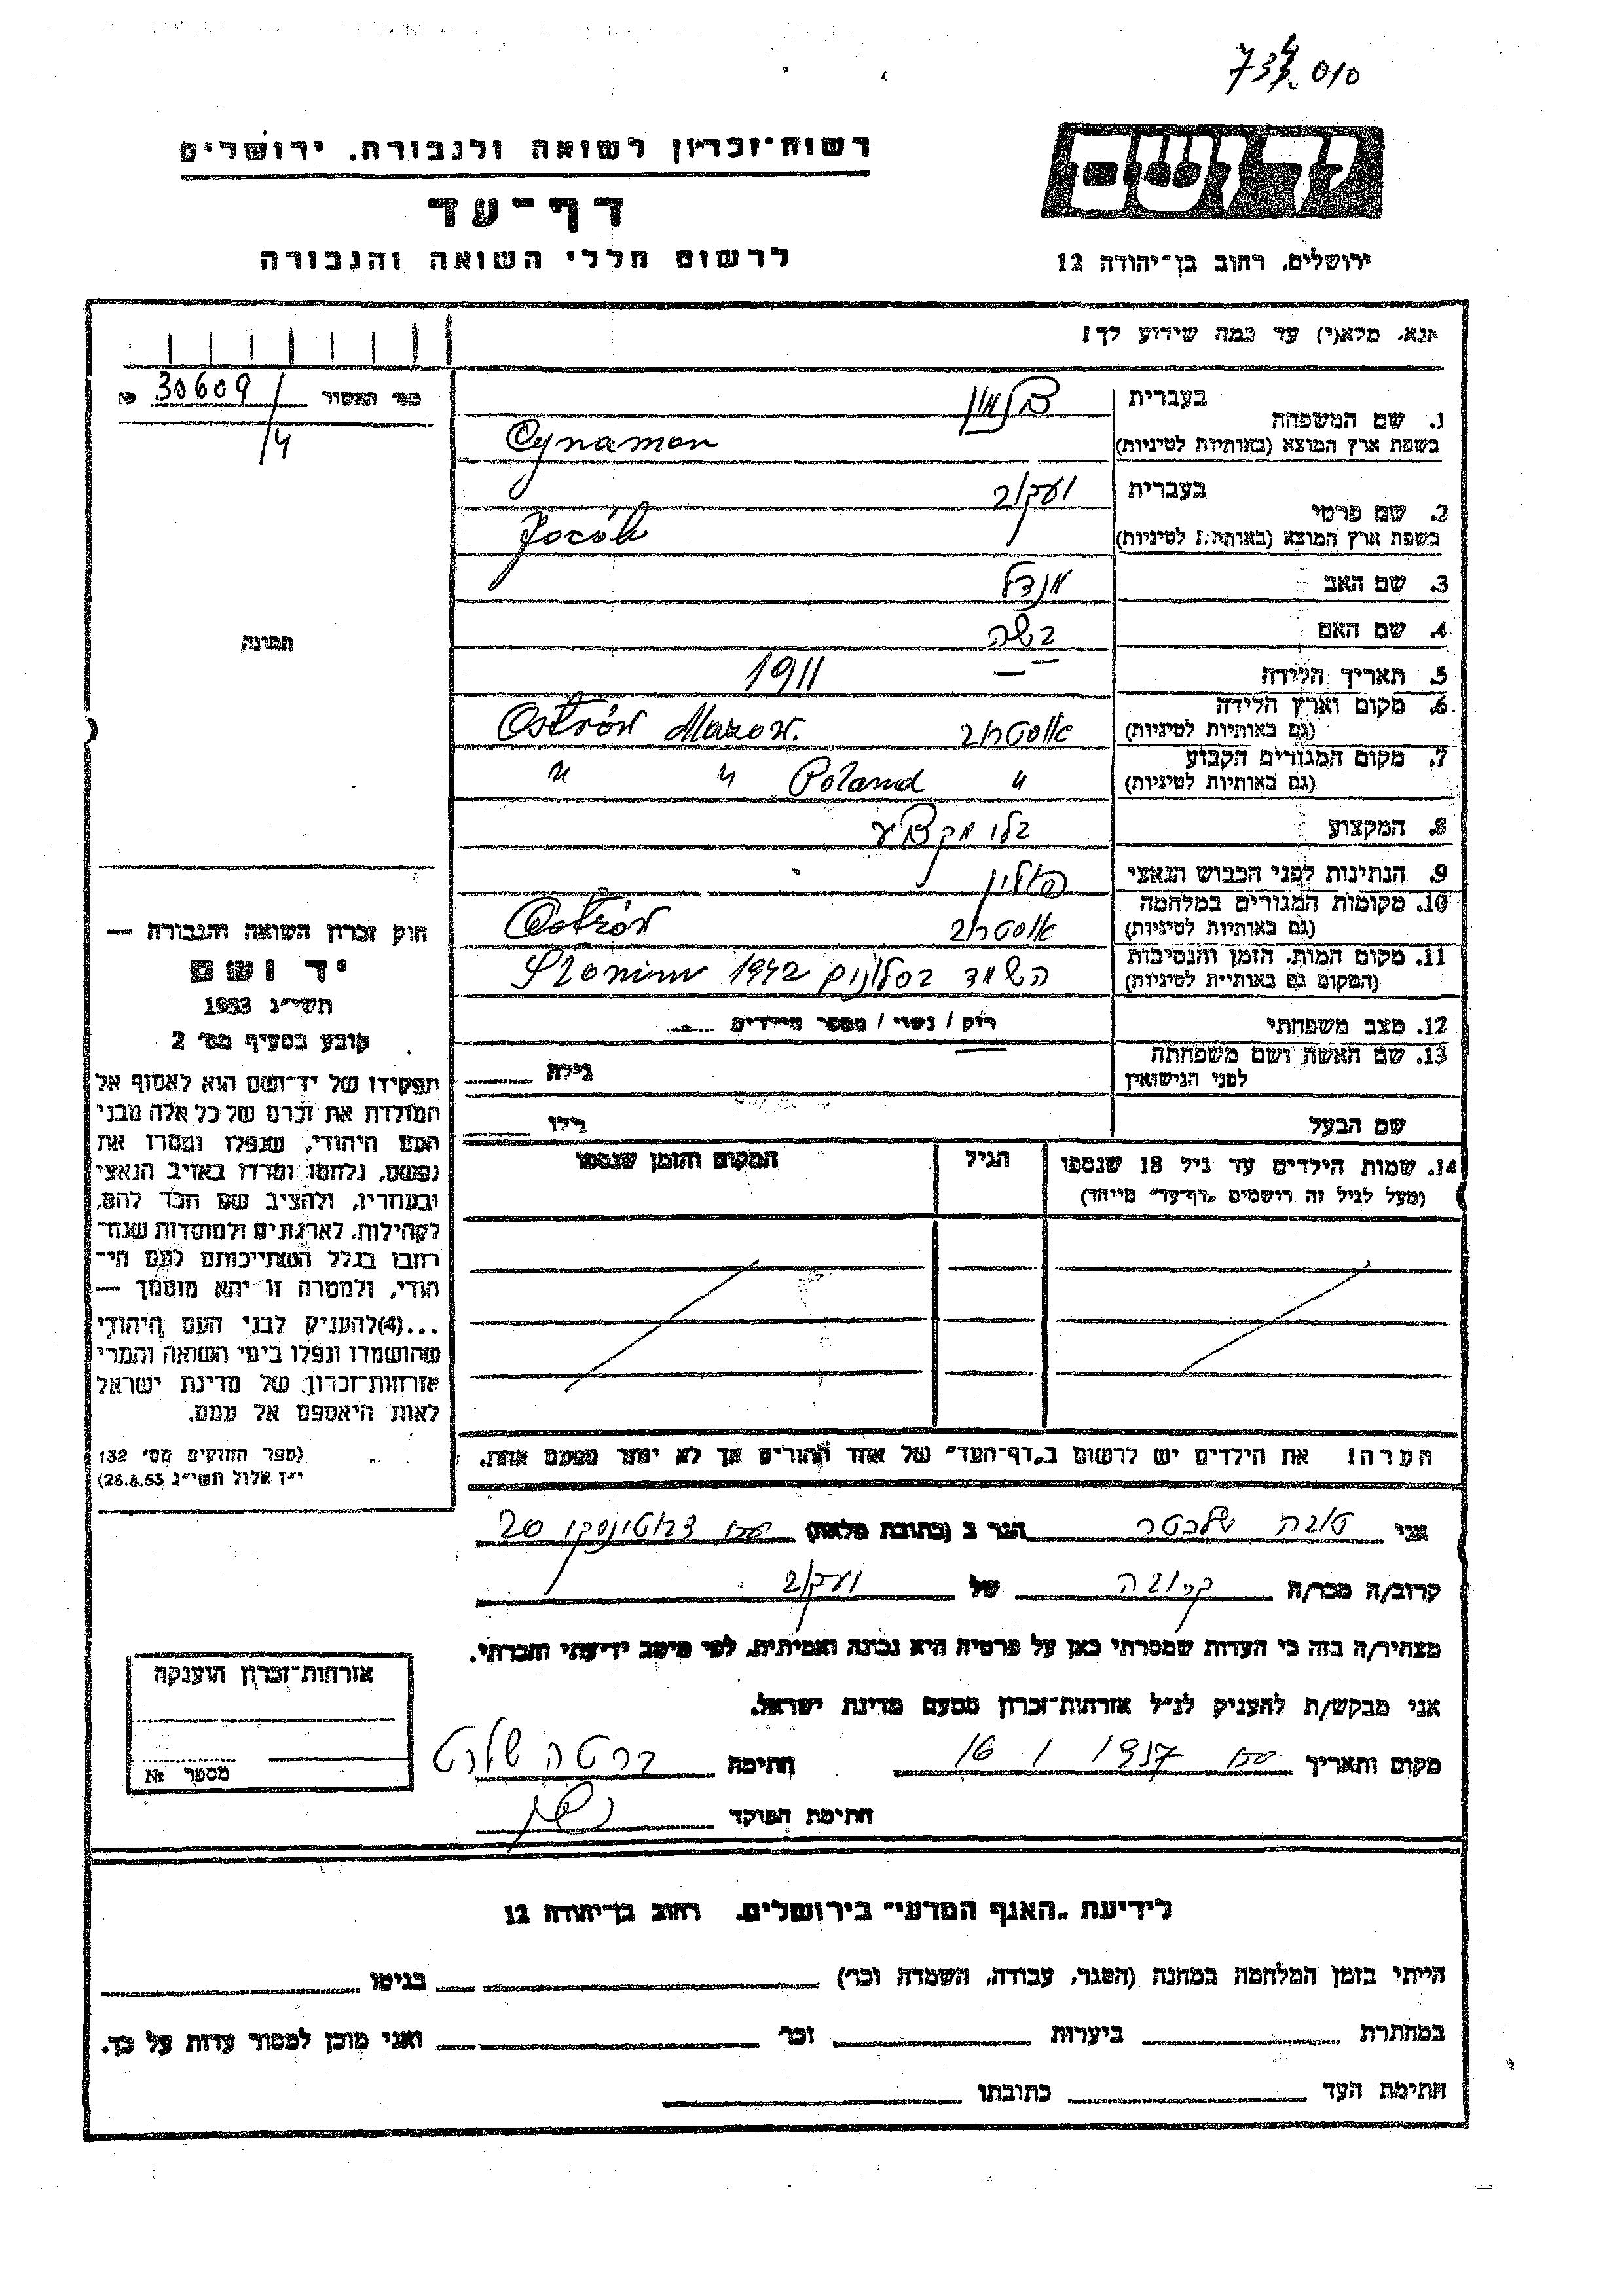 010
רשות־זכרון לשואה ולגבורה, ירושלים
דף־עד
לרשום חללי השואה והגבורה
יד ושם
ירושלים, רחוב בן־יהודה 12
אנא, מלא(י) עד כמה שידוע לך!
מס' האשור 30609 №
4
1. שם המשפחה בעברית
בשפת ארץ המוצא (באותיות לטיניות) Cynamon
2. שם פרטי בעברית יעקוב
בשפת ארץ המוצא (באותיות לטיניות)
3. שם האב מנדל
4. שם האם בשה
5. תאריך הלידה 1911
6. מקום וארץ הלידה (גם באותיות לטיניות) אוסטרוב Ostrów Mazow.
7. מקום המגורים הקבוע (גם באותיות לטיניות) " Poland " "
8. המקצוע בלי מקצוע
9. הנתינות לפני הכבוש הנאצי פולין
10. מקומות המגורים במלחמה (גם באותיות לטיניות) אוסטרוב Ostrów
11. מקום המות, הזמן והנסיבות (המקום גם באותיות לטיניות) השמד בסלונים 1942 Słonim
12. מצב משפחתי רוק / נשוי / מספר הילדים
13. שם האשה ושם משפחתה לפני הנישואין גילה
שם הבעל גילו
14. שמות הילדים עד גיל 18 שנספו הגיל המקום והזמן שנספו
(מעל לגיל זה רושמים "דף־עד" מיוחד)
הערה! את הילדים יש לרשום ב"דף־העד" של אחד ההורים אך לא יותר מפעם אחת.
תמונה
חוק זכרון השואה והגבורה —
יד ושם
תשי"ג 1953
קובע בסעיף מס' 2
תפקידו של יד־ושם הוא לאסוף אל
המולדת את זכרם של כל אלה מבני
העם היהודי, שנפלו ומסרו את
נפשם, נלחמו ומרדו באויב הנאצי
ובעוזריו, ולהציב שם וזכר להם,
לקהילות, לארגונים ולמוסדות שנח־
רבו בגלל השתייכותם לעם הי־
הודי, ולמטרה זו יהא מוסמך —
...(4)להעניק לבני העם היהודי
שהושמדו ונפלו בימי השואה והמרי
אזרחות־זכרון של מדינת ישראל
לאות היאספם אל עמם.
(ספר החוקים מס' 132
י"ז אלול תשי"ג 28.8.53)
אני טובה הגר ב (כתובת מלאה) ז'בוטינסקי 20
קרוב/ה מכר/ה קרובה של יעקוב
מצהיר/ה בזה כי העדות שמסרתי כאן על פרטיה היא נכונה ואמיתית, לפי מיטב ידיעתי והכרתי.
אני מבקש/ת להעניק לנ"ל אזרחות־זכרון מטעם מדינת ישראל.
מקום ותאריך 16 1 1957 חתימה
חתימת הפוקד
אזרחות־זכרון הוענקה
מספר №
לידיעת "האגף המדעי" בירושלים, רחוב בן־יהודה 12
הייתי בזמן המלחמה במחנה (הסגר, עבודה, השמדה וכו') בגיטו
במחתרת ביערות וכו' ואני מוכן למסור עדות על כך.
חתימת העד כתובתו